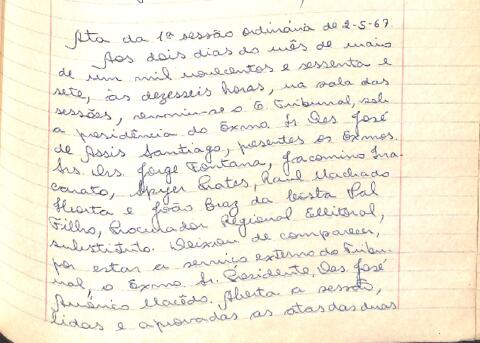 Ata da 1ª sessão ordinária de 2-5-67.
Aos dois dias do mês de maio
de um mil novecentos e sessenta e
sete, às dezesseis horas, na sala das
sessões, reuniu-se o E. Tribunal, sob
a presidência do Exmo Sr. Des. José
de Assis Santiago, presentes os Exmos.
Srs. Drs. Jorge Fontana, Jacomino Ina-
carato, Spyer Prates, Raul Machado
Horta e João Braz da Costa Val
Filho, Procurador Regional Eleitoral,
substituto. Deixou de comparecer,
por estar a serviço externo do Tribu-
nal, o Exmo Sr. Presidente, Des. José
Américo Macêdo. Aberta a sessão,
lidas e aprovadas as atas das duas